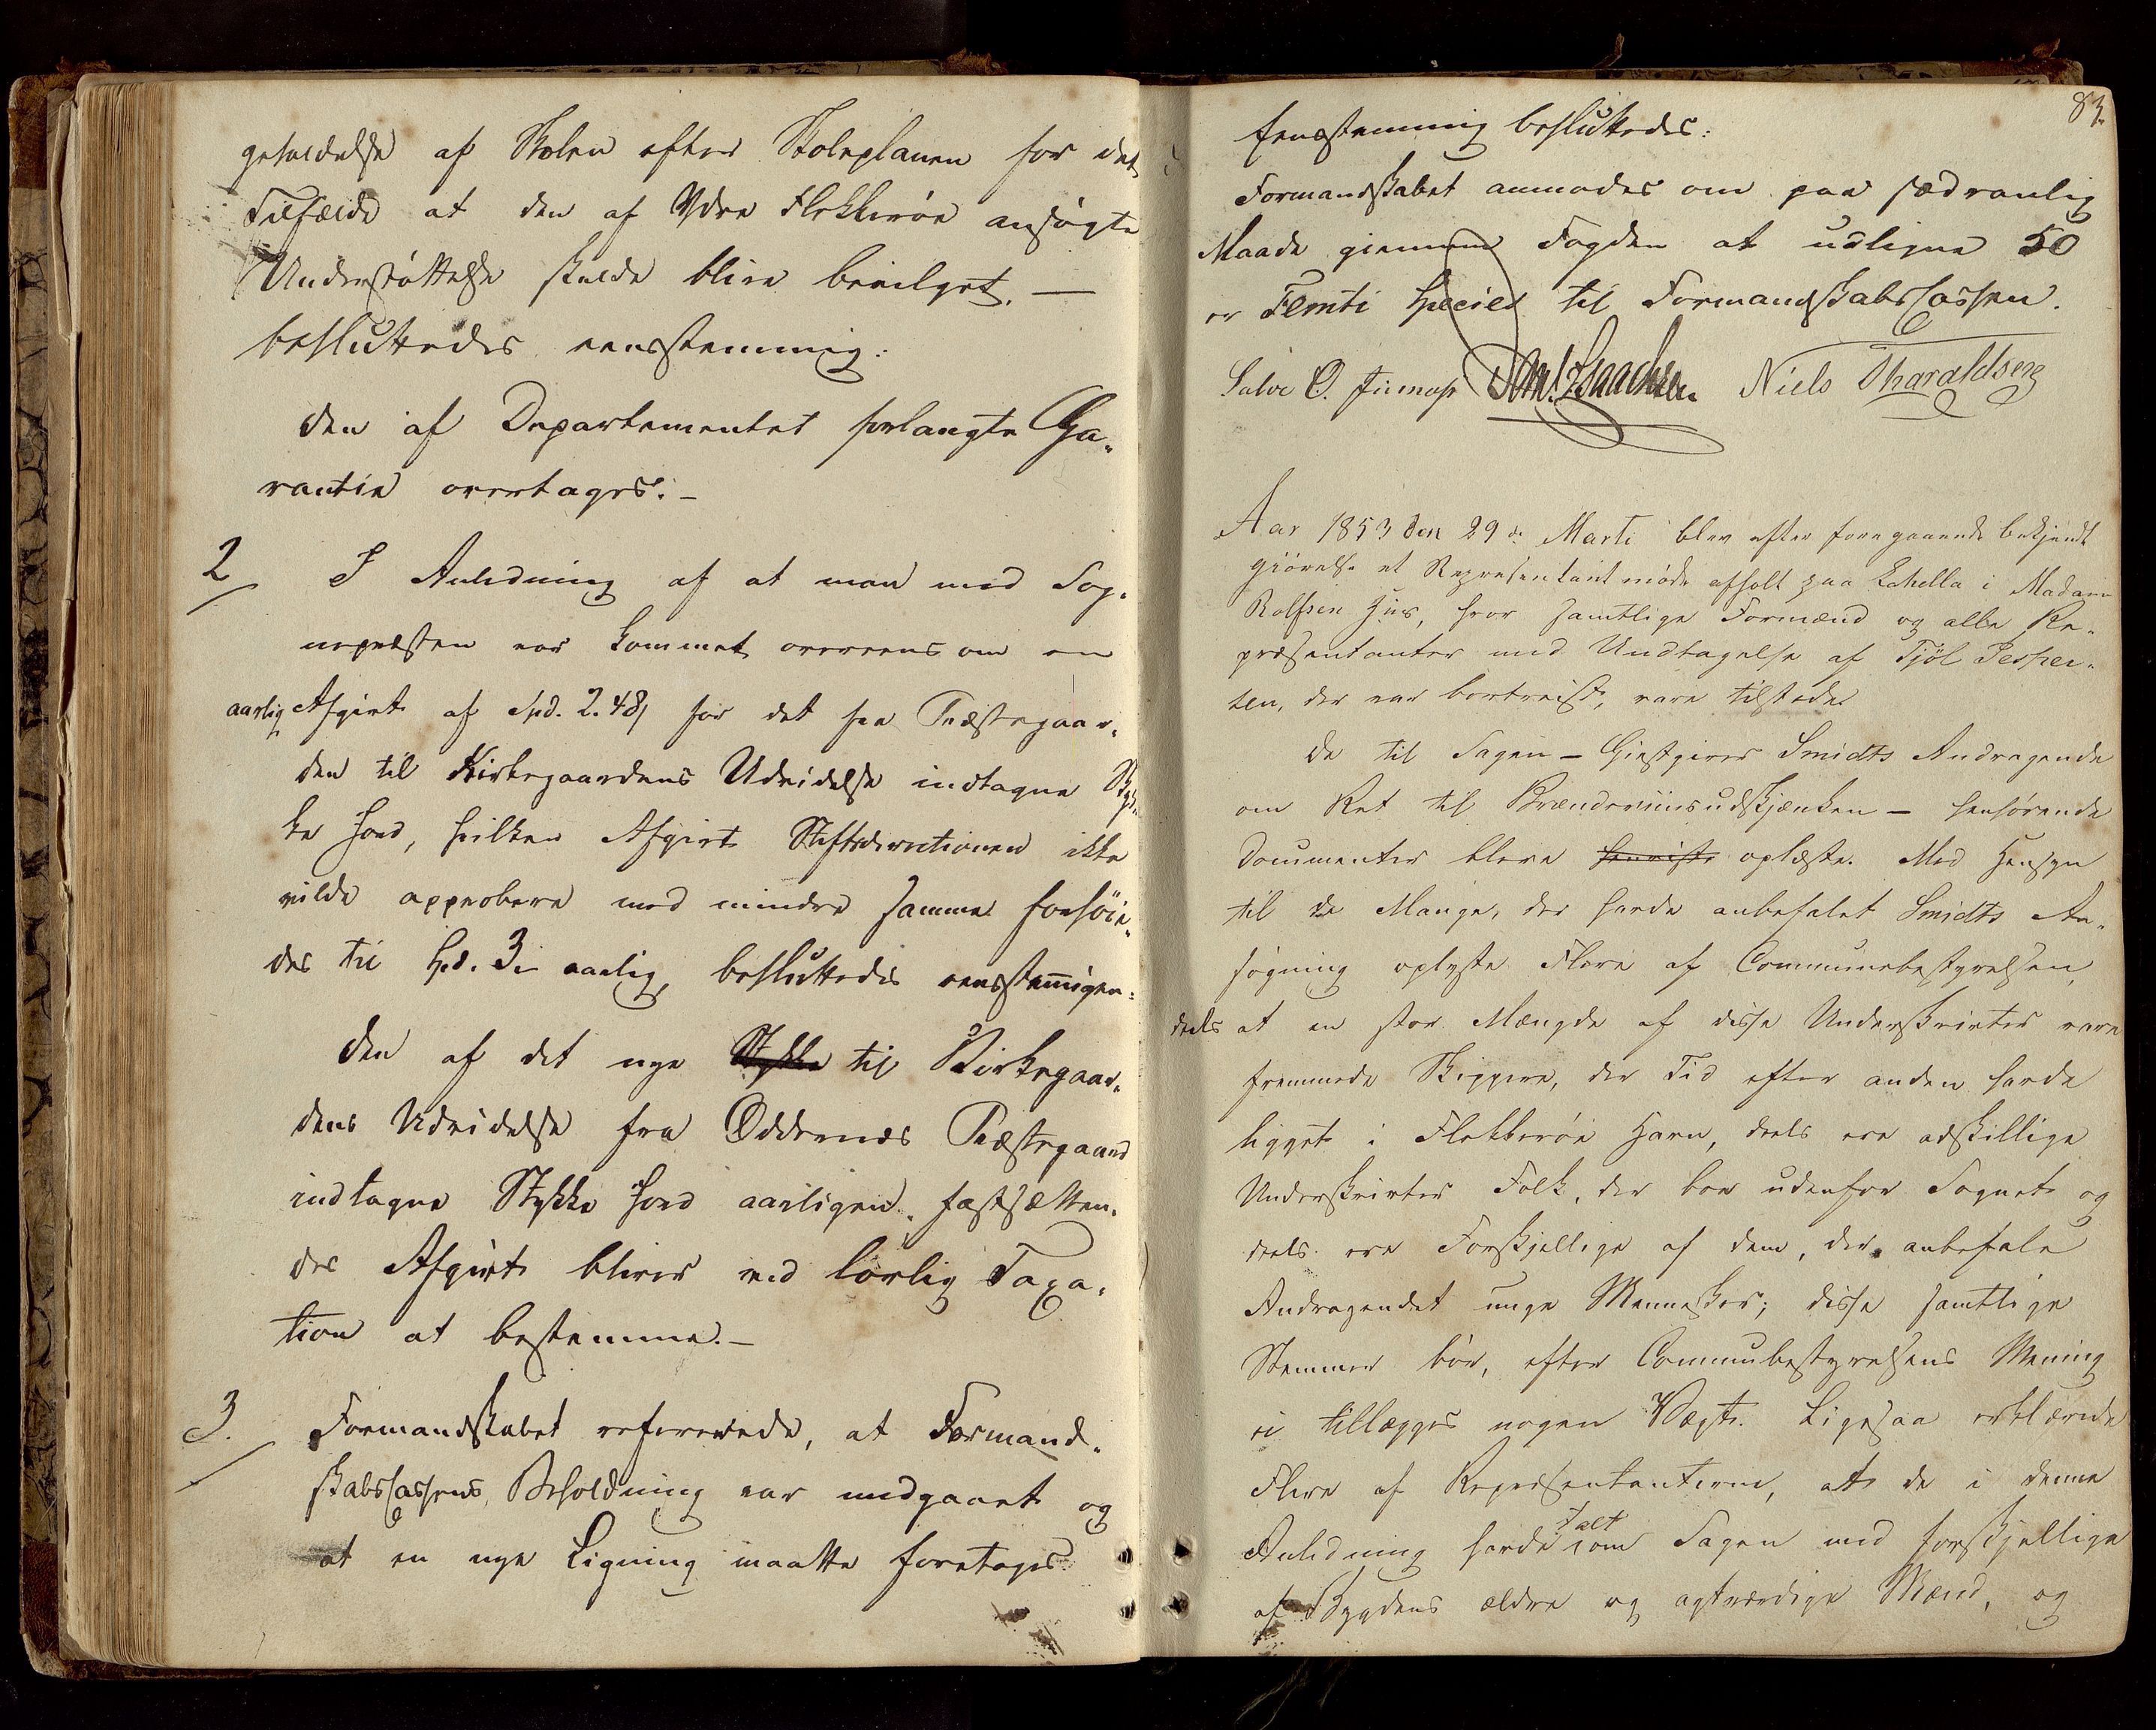 geholdelse af Skolen efter Skoleplanen for det
Tilfælde at den af Ydre Flekkerøe ansøgte
Understøttelse skulde blive bevilget. —
besluttedes eensstemmig:
den af Departementet forlangte Ga-
rantie overtages. —
2/ I Anledning af at man med Sog-
nepræsten var kommet overeens om en
aarlig Afgivt af Spd. 2. 48 s for det fra Præstegaar-
den til Kirkegaardens Udvidelse indtagne Styk-
ke Jord, hvilken Afgivt Stiftsdirectionen ikke
vilde approbere med mindre samme forhøie-
des til Spd. 3 aarlig, besluttedes eensstemmigen:
den af det nye Stykke til Kirkegaar-
dens Udvidelse fra Oddernæs Præstegaard
indtagne Stykke Jord aarligen fastsætten-
des Afgivt bliver ved lovlig Taxa-
tion at bestemme. —
3./ Formandskabet refererede, at Formand-
skabscassens Beholdning var medgaaet og
at en nye Ligning maatte foretages.
83.
Eensstemmig besluttedes:
Formandskabet anmodes om paa sædvanlig
Maade giennem Fogden at udligne 50
er Femti Species til Formandskabscassen.
Salve O. Isaachsen Niels Tharaldsen
Aar 1853 den 29de Marti blev efter foregaaende bekjendt
giørelse et Repræsentantmøde afholt paa Lahella i Madam
Rolfsen Hus, hvor samtlige Formænd og alle Re-
præsentanter med Undtagelse af Tjøl Jesper-
sen, der var bortreist, vare tilstæde.
De til Sagen – Giestgiver Smidts Andragende
om Ret til Brændeviinsudskjænken – henhørende
Documenter bleve oplæste. Med Hensyn
til de Mange, der havde anbefalet Smidts An-
søgning oplyste Flere af Communebestyrelsen,
deels at en stor Mængde af disse Underskrivter vare
fremmede Skippere, der Tid efter anden havde
ligget i Flekkerøe Havn, deels ere adskillige
Underskrivter Folk, der boe udenfor Sognet og
deels ere Forskjellige af dem, der anbefale
Andragendet unge Mennesker; disse samtlige
Stemmer bør, efter Communbestyrelsens Mening
ei tillægges nogen Vægt. Ligesaa erklærede
Flere af Repræsentanterne, at de i denne
Anledning havde talt om Sagen med forskjellige
af Bygdens ældre og agtværdige Mænd, og